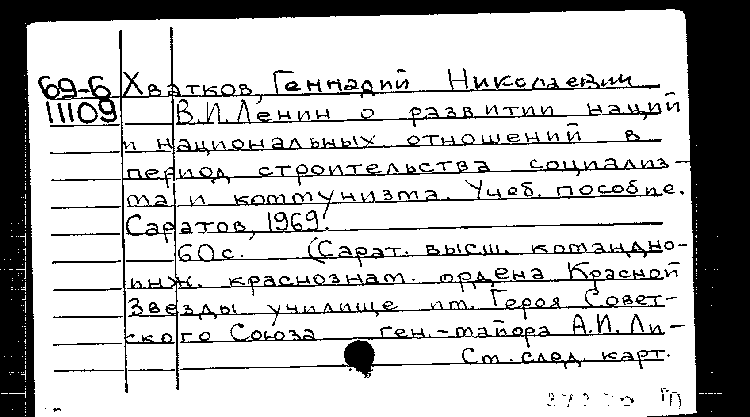 69-6 Хватков, Геннадий Николаевич
11109 В.И.Ленин о развитии наций
и национальных отношений в
период строительства социализ-
ма и коммунизма. Учеб. пособие.
Саратов, 1969.
60с. (Сарат. высш. командно-
инж. краснознам. ордена Красной
Звезды училище им. Героя Совет-
ского Союза ген.-майора А.И. Ли-
См. след. карт.